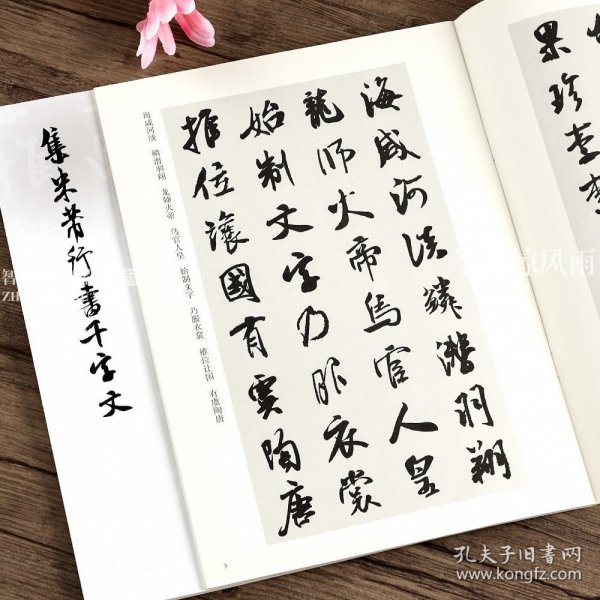 果珍李
海咸河淡鱗潛羽翔
龍師火帝鳥官人皇
始制文字乃服衣裳
推位讓國有虞陶唐
海咸河淡 鳞潜羽翔 龙师火帝 鸟官人皇 始制文字 乃服衣裳 推位让国 有虞陶唐
3
集米芾行書千字文
风雨
孔夫子旧书网
www.kongfz.com